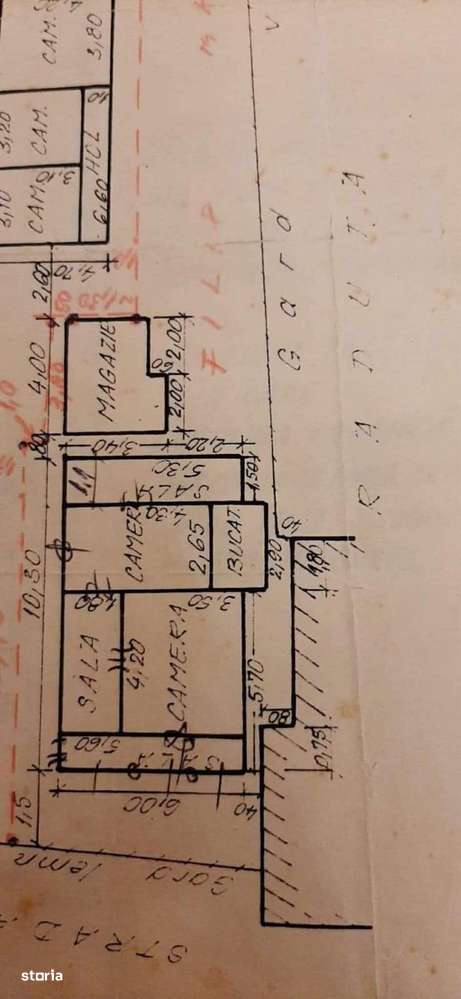 CAM.
3,80
3,20
CAM.
HOL
CAM.
6,60
2,60
4,70
4,00
MAGAZIE
2,00
2,00
FILIP
Gard
RADUTA
3,40
2,20
5,30
SALA
1,50
1,1
CAMERA
4,30
2,65
BUCAT.
2,90
40
1,80
10,30
1,80
SALA
4,20
CAMERA
3,50
5,70
80
0,75
5,60
6,00
40
1,5
Gard lemn
STRADA
storia